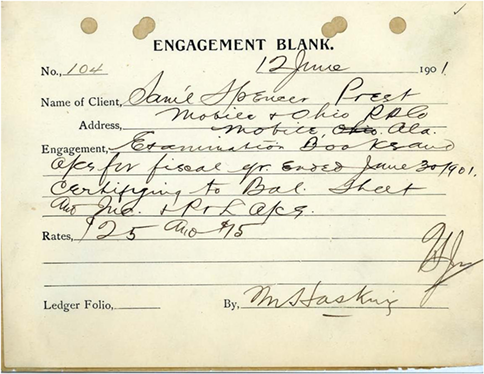 ENGAGEMENT BLANK.
No., 104 12 June 1901
Name of Client, Sam'l Spencer Prest
Mobile & Ohio RR Co
Address, Mobile, Ohio Ala.
Engagement, Examination Books and
a/cs for fiscal yr. ended June 30 1901.
Certifying to Bal. Sheet
and Inc. & P & L a/cs.
Rates, $25 and $15
Ledger Folio, By, Haskins